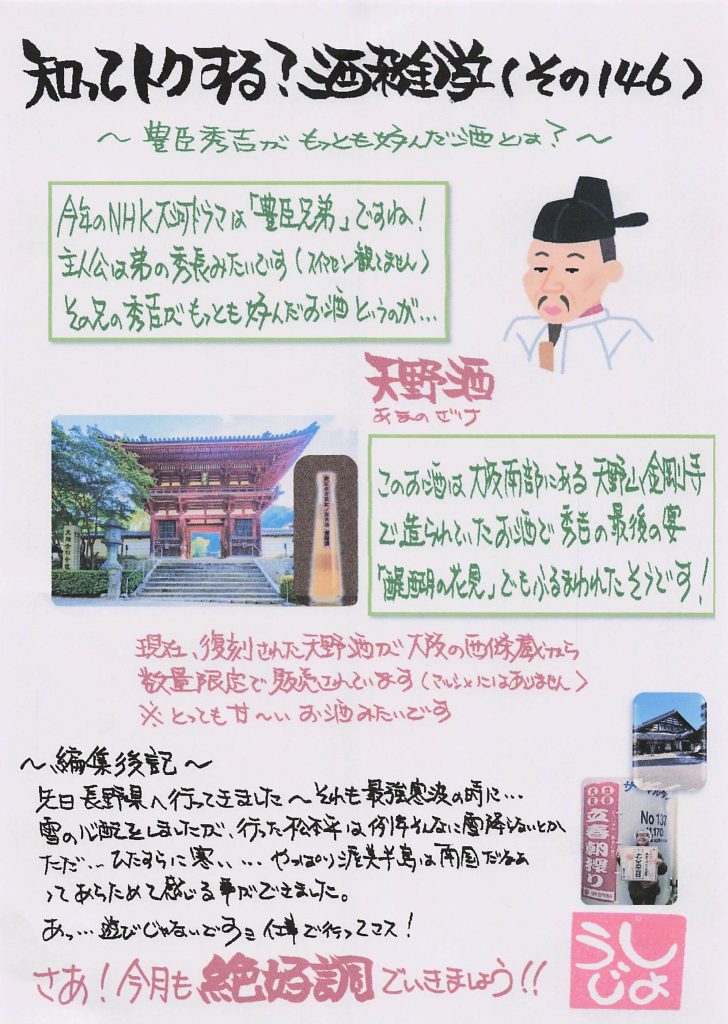 知ってトクする?酒雑学(その146)
～豊臣秀吉がもっとも好んだ酒とは?～
今年のNHK大河ドラマは「豊臣兄弟」ですね!
主人公は弟の秀長みたいです(スイマセン観てません)
その兄の秀吉がもっとも好んだお酒というのが…
天野酒
あまのざけ
このお酒は大阪南部にある天野山金剛寺
で造られていたお酒で秀吉の最後の宴
「醍醐の花見」でもふるまわれたそうです!
現在、復刻された天野酒が大阪の西條蔵から
数量限定で販売されています(マルシメにはありません)
※とっても甘～いお酒みたいです
～編集後記～
先日長野県へ行ってきました～それも最強寒波の時に…
雪の心配をしましたが、行った松本平は例年そんなに雪降らないとか
ただ…ひたすらに寒い…やっぱり渥美半島は南国だなぁ
ってあらためて感じる事ができました。
あっ…遊びじゃないですョ仕事で行ってマス!
No 137
立春朝搾り
さあ!今月も絶好調でいきましょう!!
うじょし